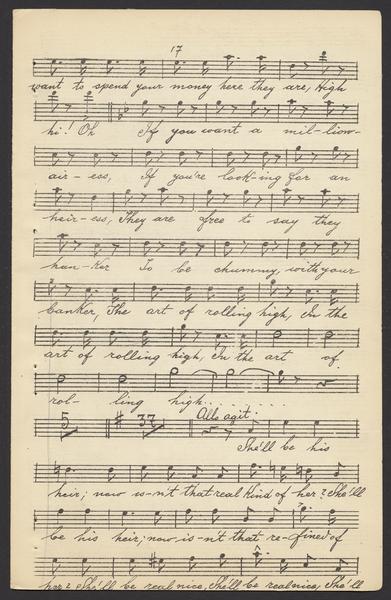 17
want to spend your money here they are, High
hi! Oh If you want a mil-lion-
air-ess, If you're look-ing for an
heir-ess, They are free to say they
han-Ker To be chummy, with your
banKer, The art of rolling high, In the
art of rolling high, In the art of
rol- ling high........
5 37 Allo agit.
She'll be his
heir; now is-n't that real Kind of her? She'll
be his heir; now is-n't that re-fined of
her? She'll be real nice, She'll be real nice, She'll